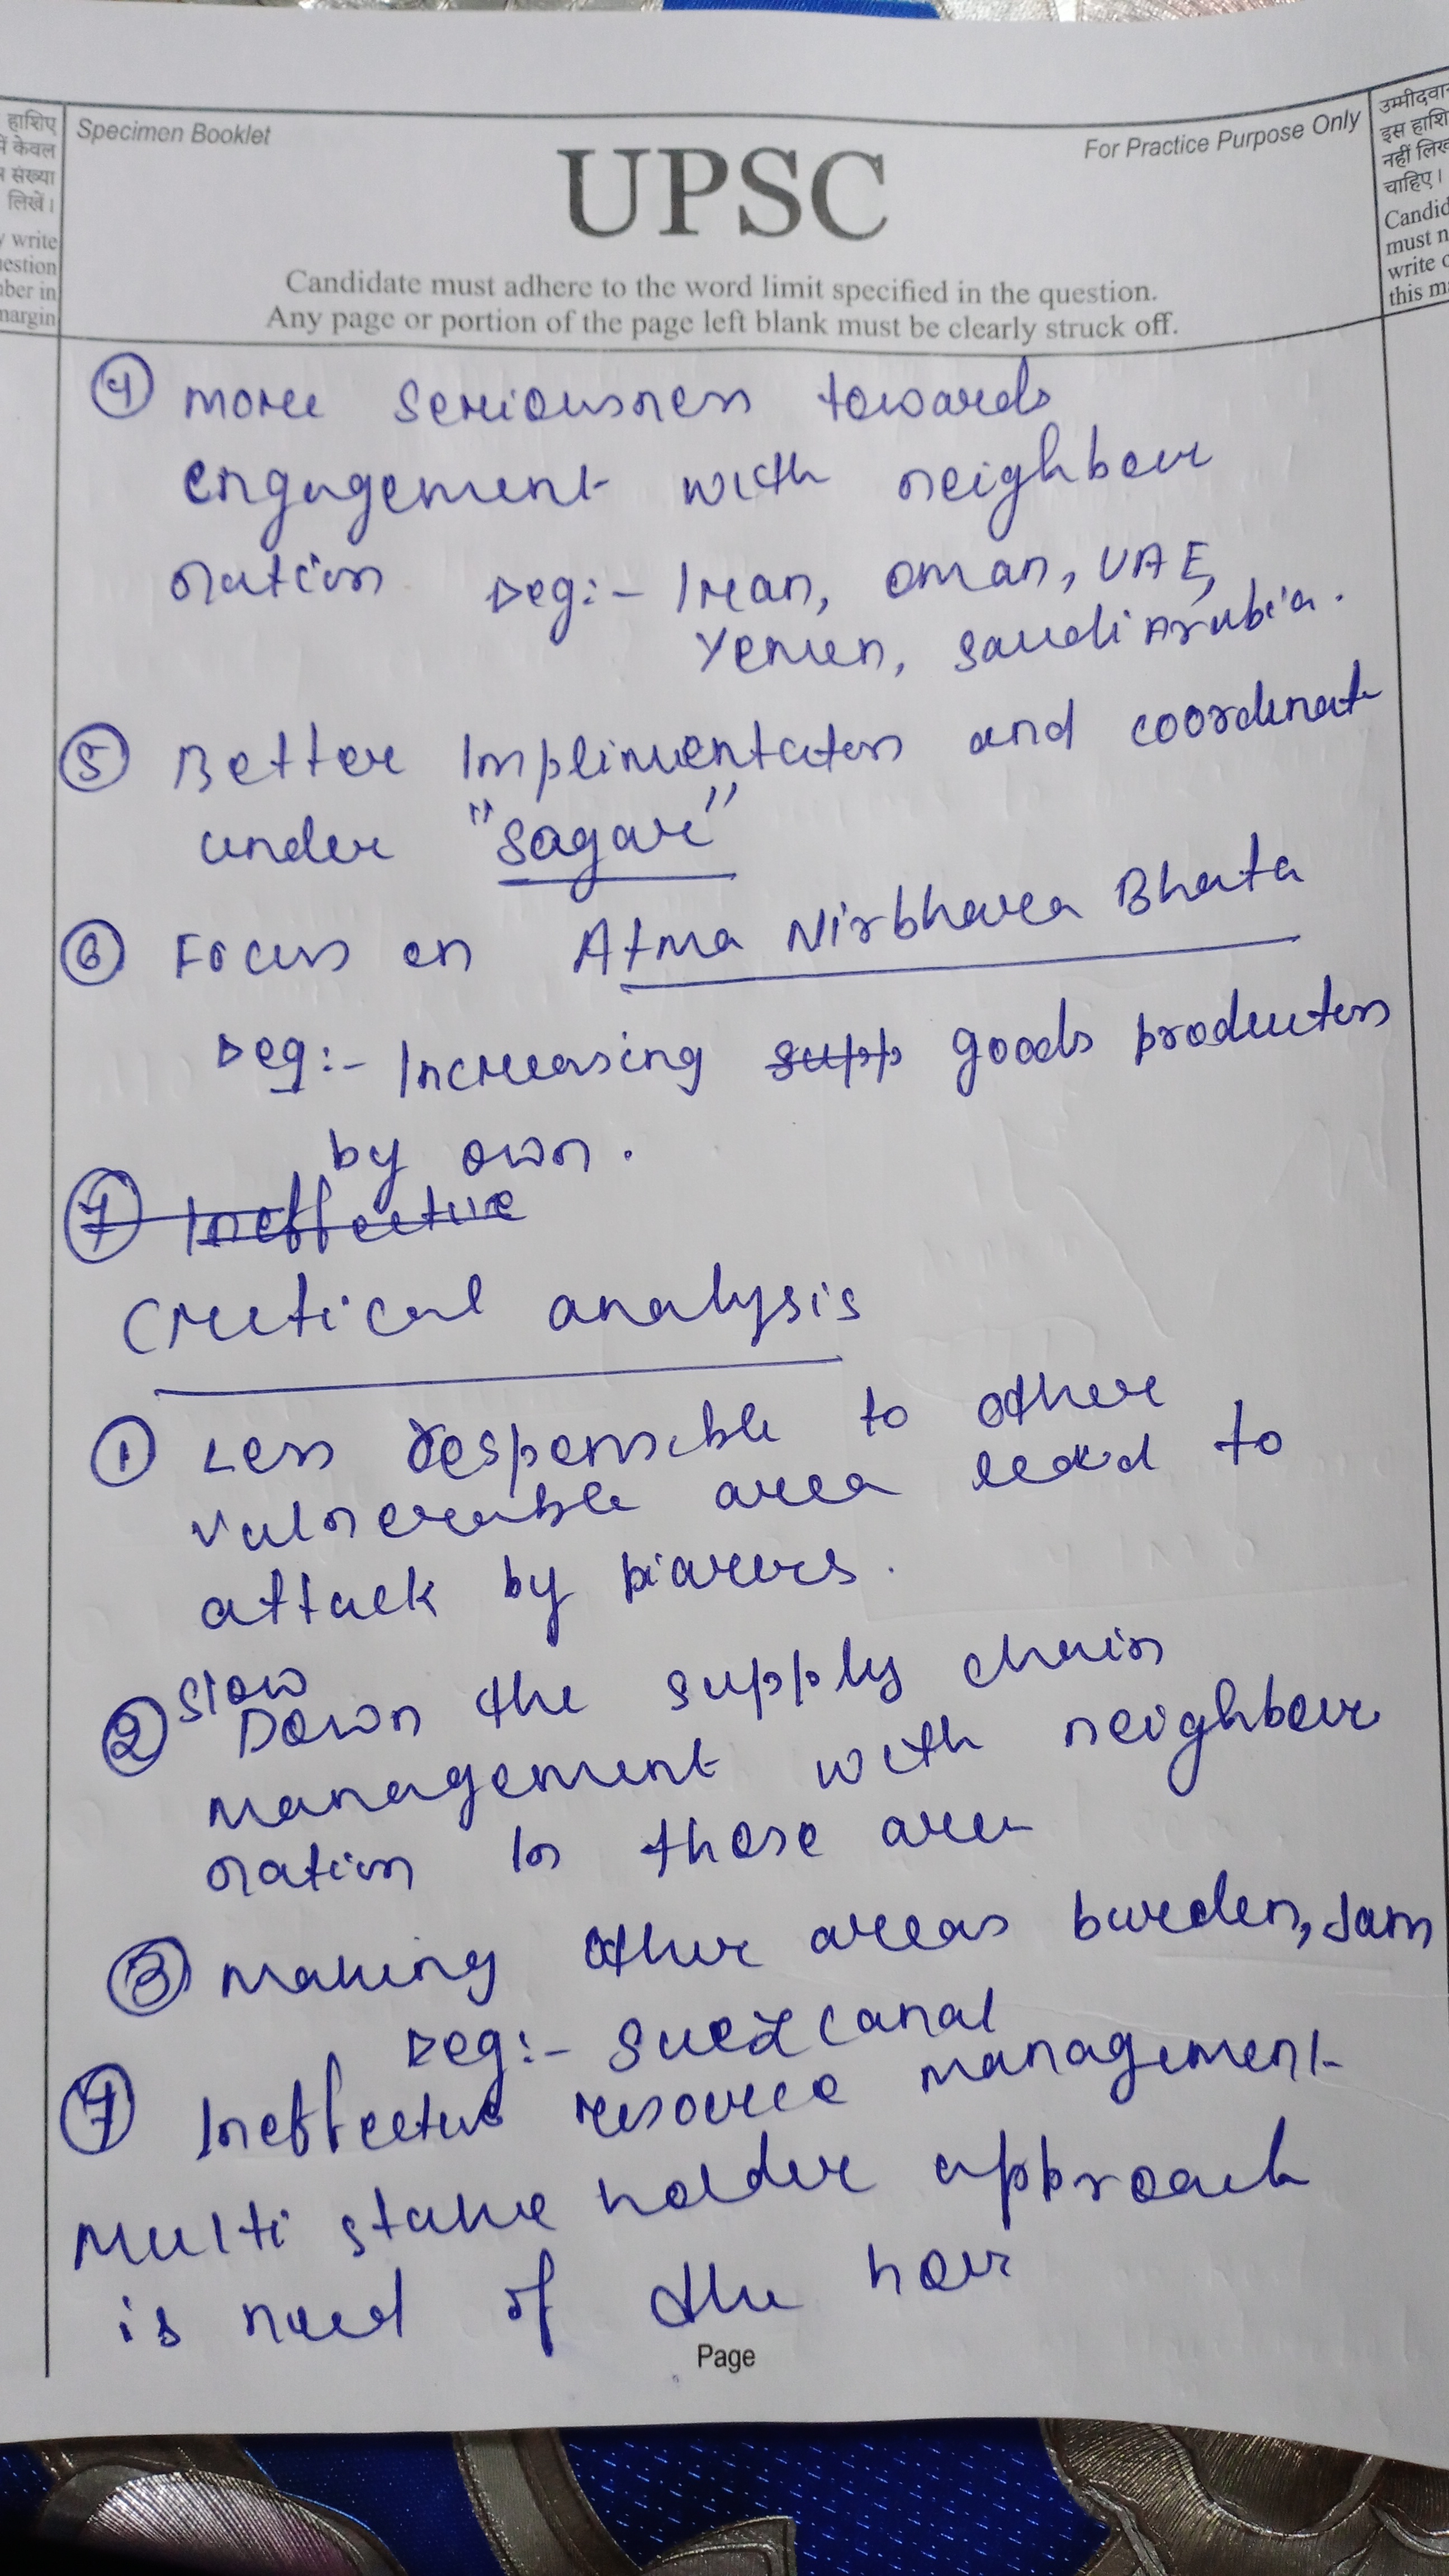 हाशिए
में केवल
संख्या
लिखें।
write
in
margin
Specimen Booklet
For Practice Purpose Only
उम्मीदवार
इस हाशि
नहीं लिख
चाहिए।
Candid
must n
write o
this m
UPSC
Candidate must adhere to the word limit specified in the question.
Any page or portion of the page left blank must be clearly struck off.
④ more seriousness towards
engagement with neighbour
nation eg:- Iran, Oman, UAE,
Yemen, Saudi Arabia.
⑤ Better Implimentation and coordinat
under "Sagar"
⑥ Focus on Atma Nirbhara Bhata
eg:- Increasing supp goods production
by own.
⑦ Ineffective
Critical analysis
① Less responsible to other
vulnerable area lead to
attack by
② Slow
Down the supply chain
management with neighbour
nation In these area
③ Making other areas burden, Jam
eg:- Suez Canal
Ineffective resource management
Multi stake holder approach
is need of the hour
Page